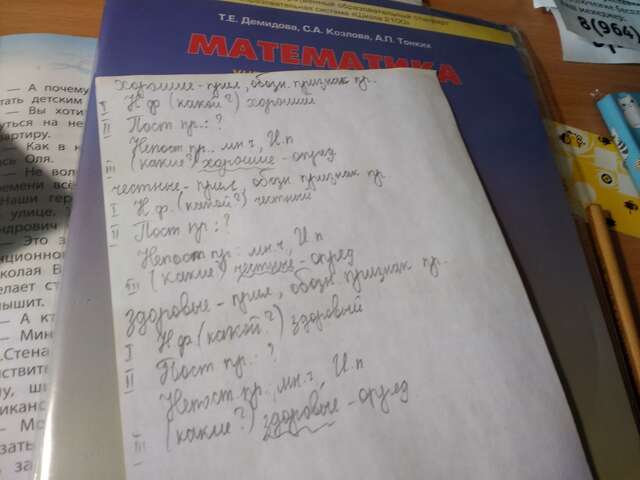 ственный образовательный стандарт
образовательная система «Школа 2100»
Т.Е. Демидова, С.А. Козлова, А.П. Тонких
МАТЕМАТИКА
8(964)
хорошие - прил, обозн. признак пр.
I Н.ф (какой?) хороший
II Пост пр.: ?
Непост пр.. мн.ч, И.п
III (какие?) хорошие - опред
честные - прил, обозн признак пр.
I Н.ф. (какой?) честный
II Пост пр.: ?
Непост пр: мн.ч, И п
III (какие?) честные - опред
здоровые - прил, обозн признак пр.
I Н.ф (какой?) здоровый
II Пост пр.: ?
Непост. пр., мн.ч, И.п
III (какие?) здоровые - опред
— А почему
тать детским
— Вы хоти
уться на не
вартиру.
— Как в к
ась Оля.
— Не вол
ремени всё
Наши гер
улице.
ндрович
— Это з
ционное
колая В
елает ст
ышит.
— А кт
— Мин
.Стена
йствите
у, ши
икансі
— Мо
азать
за